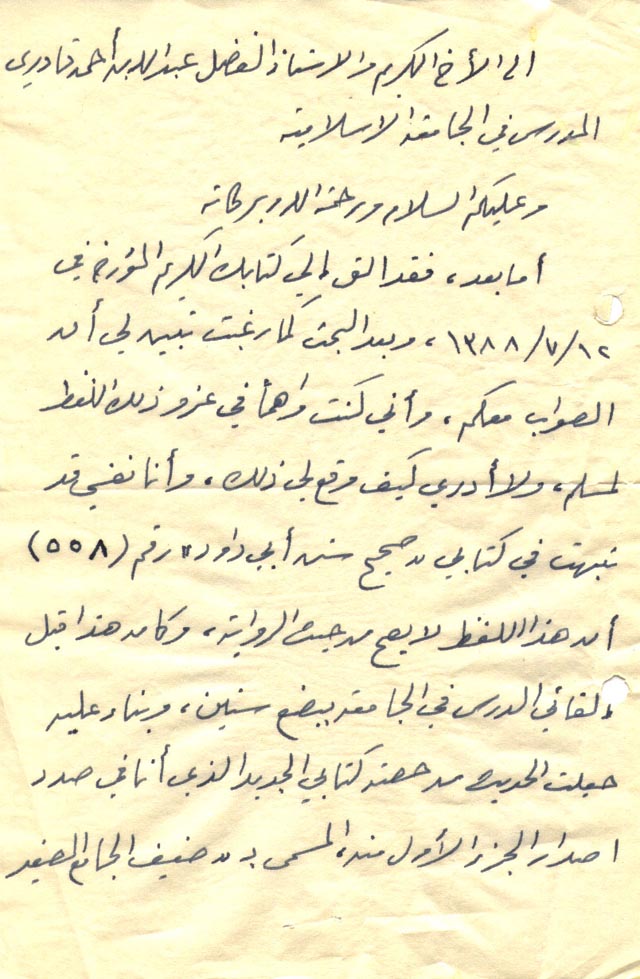 الى الأخ الكريم والاستاذ الفضل عبدالله بن أحمد قادري
المدرس في الجامعة الاسلامية
وعليكم السلام ورحمة الله وبركاته
أما بعد، فقد ألقي إلي كتابك الكريم المؤرخ في
١٢/٧/١٣٨٨، وبعد البحث كما رغبت تبين لي أن
الصواب معكم، وأني كنت واهماً في عزو ذلك اللفظ
لمسلم، ولا أدري كيف وقع لي ذلك، وأنا نفسي قد
نبهت في كتابي "صحيح سنن أبي داود" رقم (٥٥٨)
أن هذا اللفظ لا يصح من حيث الرواية، وكان هذا قبل
إلقائي الدرس في الجامعة ببضع سنين، وبناء عليه
جعلت الحديث من حصة كتابي الجديد الذي أنا في صدد
اصدار الجزء الأول منه، المسمى بـ "ضعيف الجامع الصغير